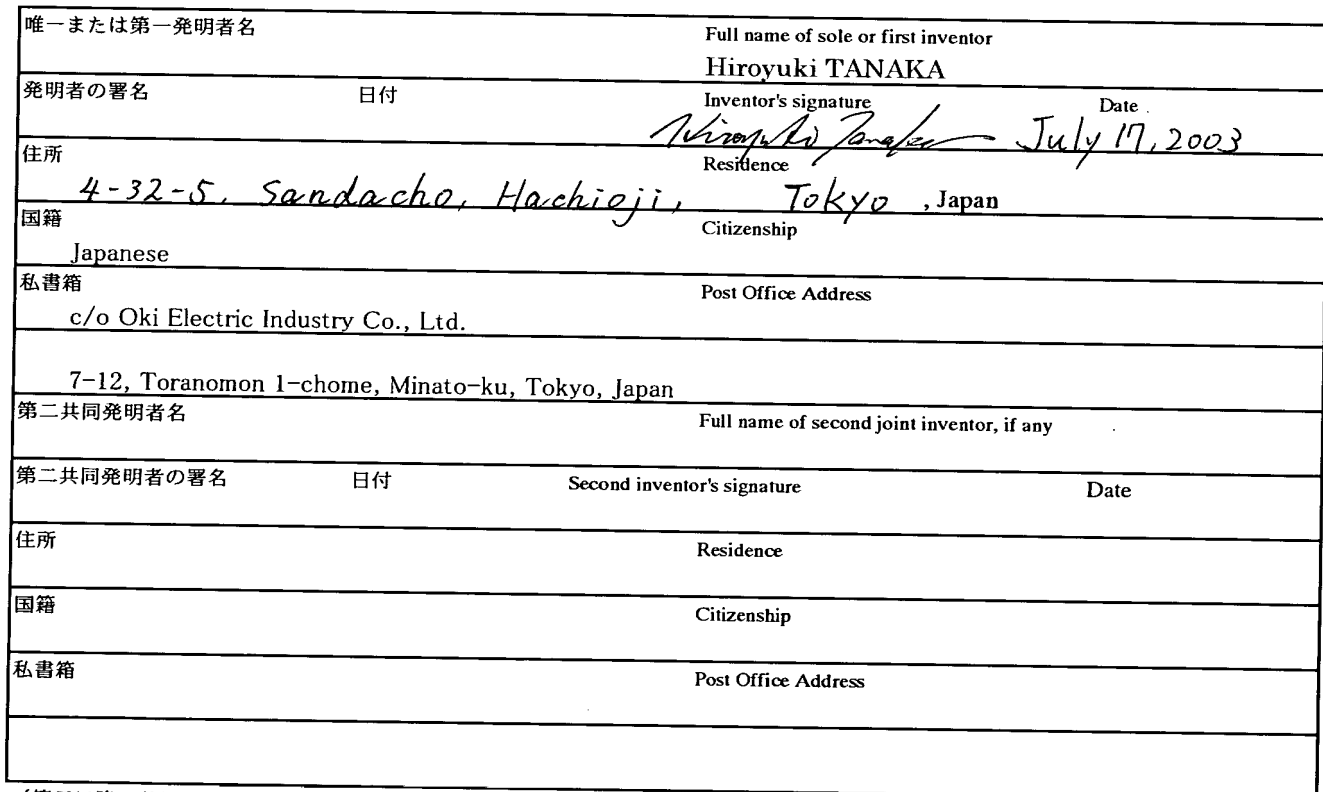 唯一または第一発明者名 Full name of sole or first inventor
Hiroyuki TANAKA
発明者の署名 日付 Inventor's signature Date
Hiroyuki Tanaka July 17, 2003
住所 Residence
4-32-5, Sandacho, Hachioji, Tokyo , Japan
国籍 Citizenship
Japanese
私書箱 Post Office Address
c/o Oki Electric Industry Co., Ltd.
7-12, Toranomon 1-chome, Minato-ku, Tokyo, Japan
第二共同発明者名 Full name of second joint inventor, if any
第二共同発明者の署名 日付 Second inventor's signature Date
住所 Residence
国籍 Citizenship
私書箱 Post Office Address